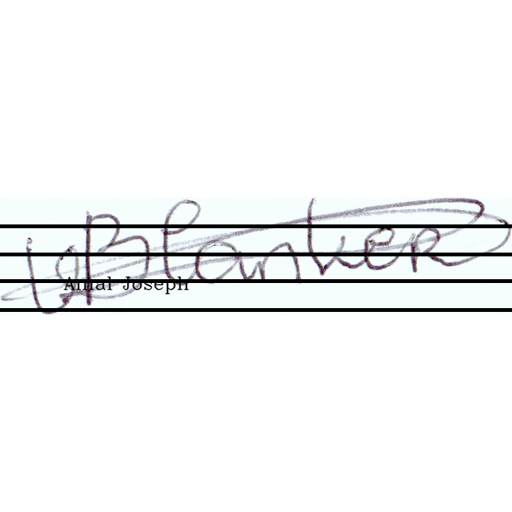 Blanker
Amal Joseph